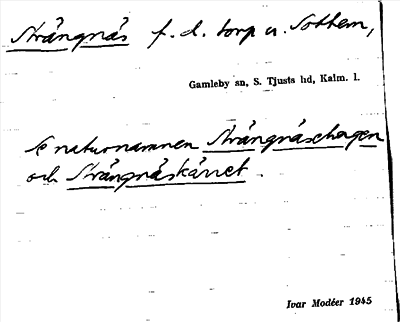 Strångnäs f. d. torp u. Tottem,
Gamleby sn, S. Tjusts hd, Kalm. l.
Se naturnamnen Strångnäshagen
och Strångnäskärret.
Ivar Modéer 1945